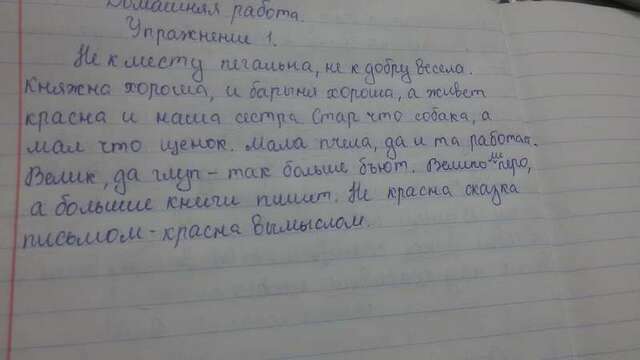 Домашняя работа.
Упражнение 1.
Не к месту печальна, не к добру весела.
Княжна хороша, и барыня хороша, а живет
красна и наша сестра Стар что собака, а
мал что щенок. Мала пчела, да и та работает.
Велик, да глуп – так больше бьют. Велико не перо,
а большие книги пишет. Не красна сказка
письмом - красна вымыслом.